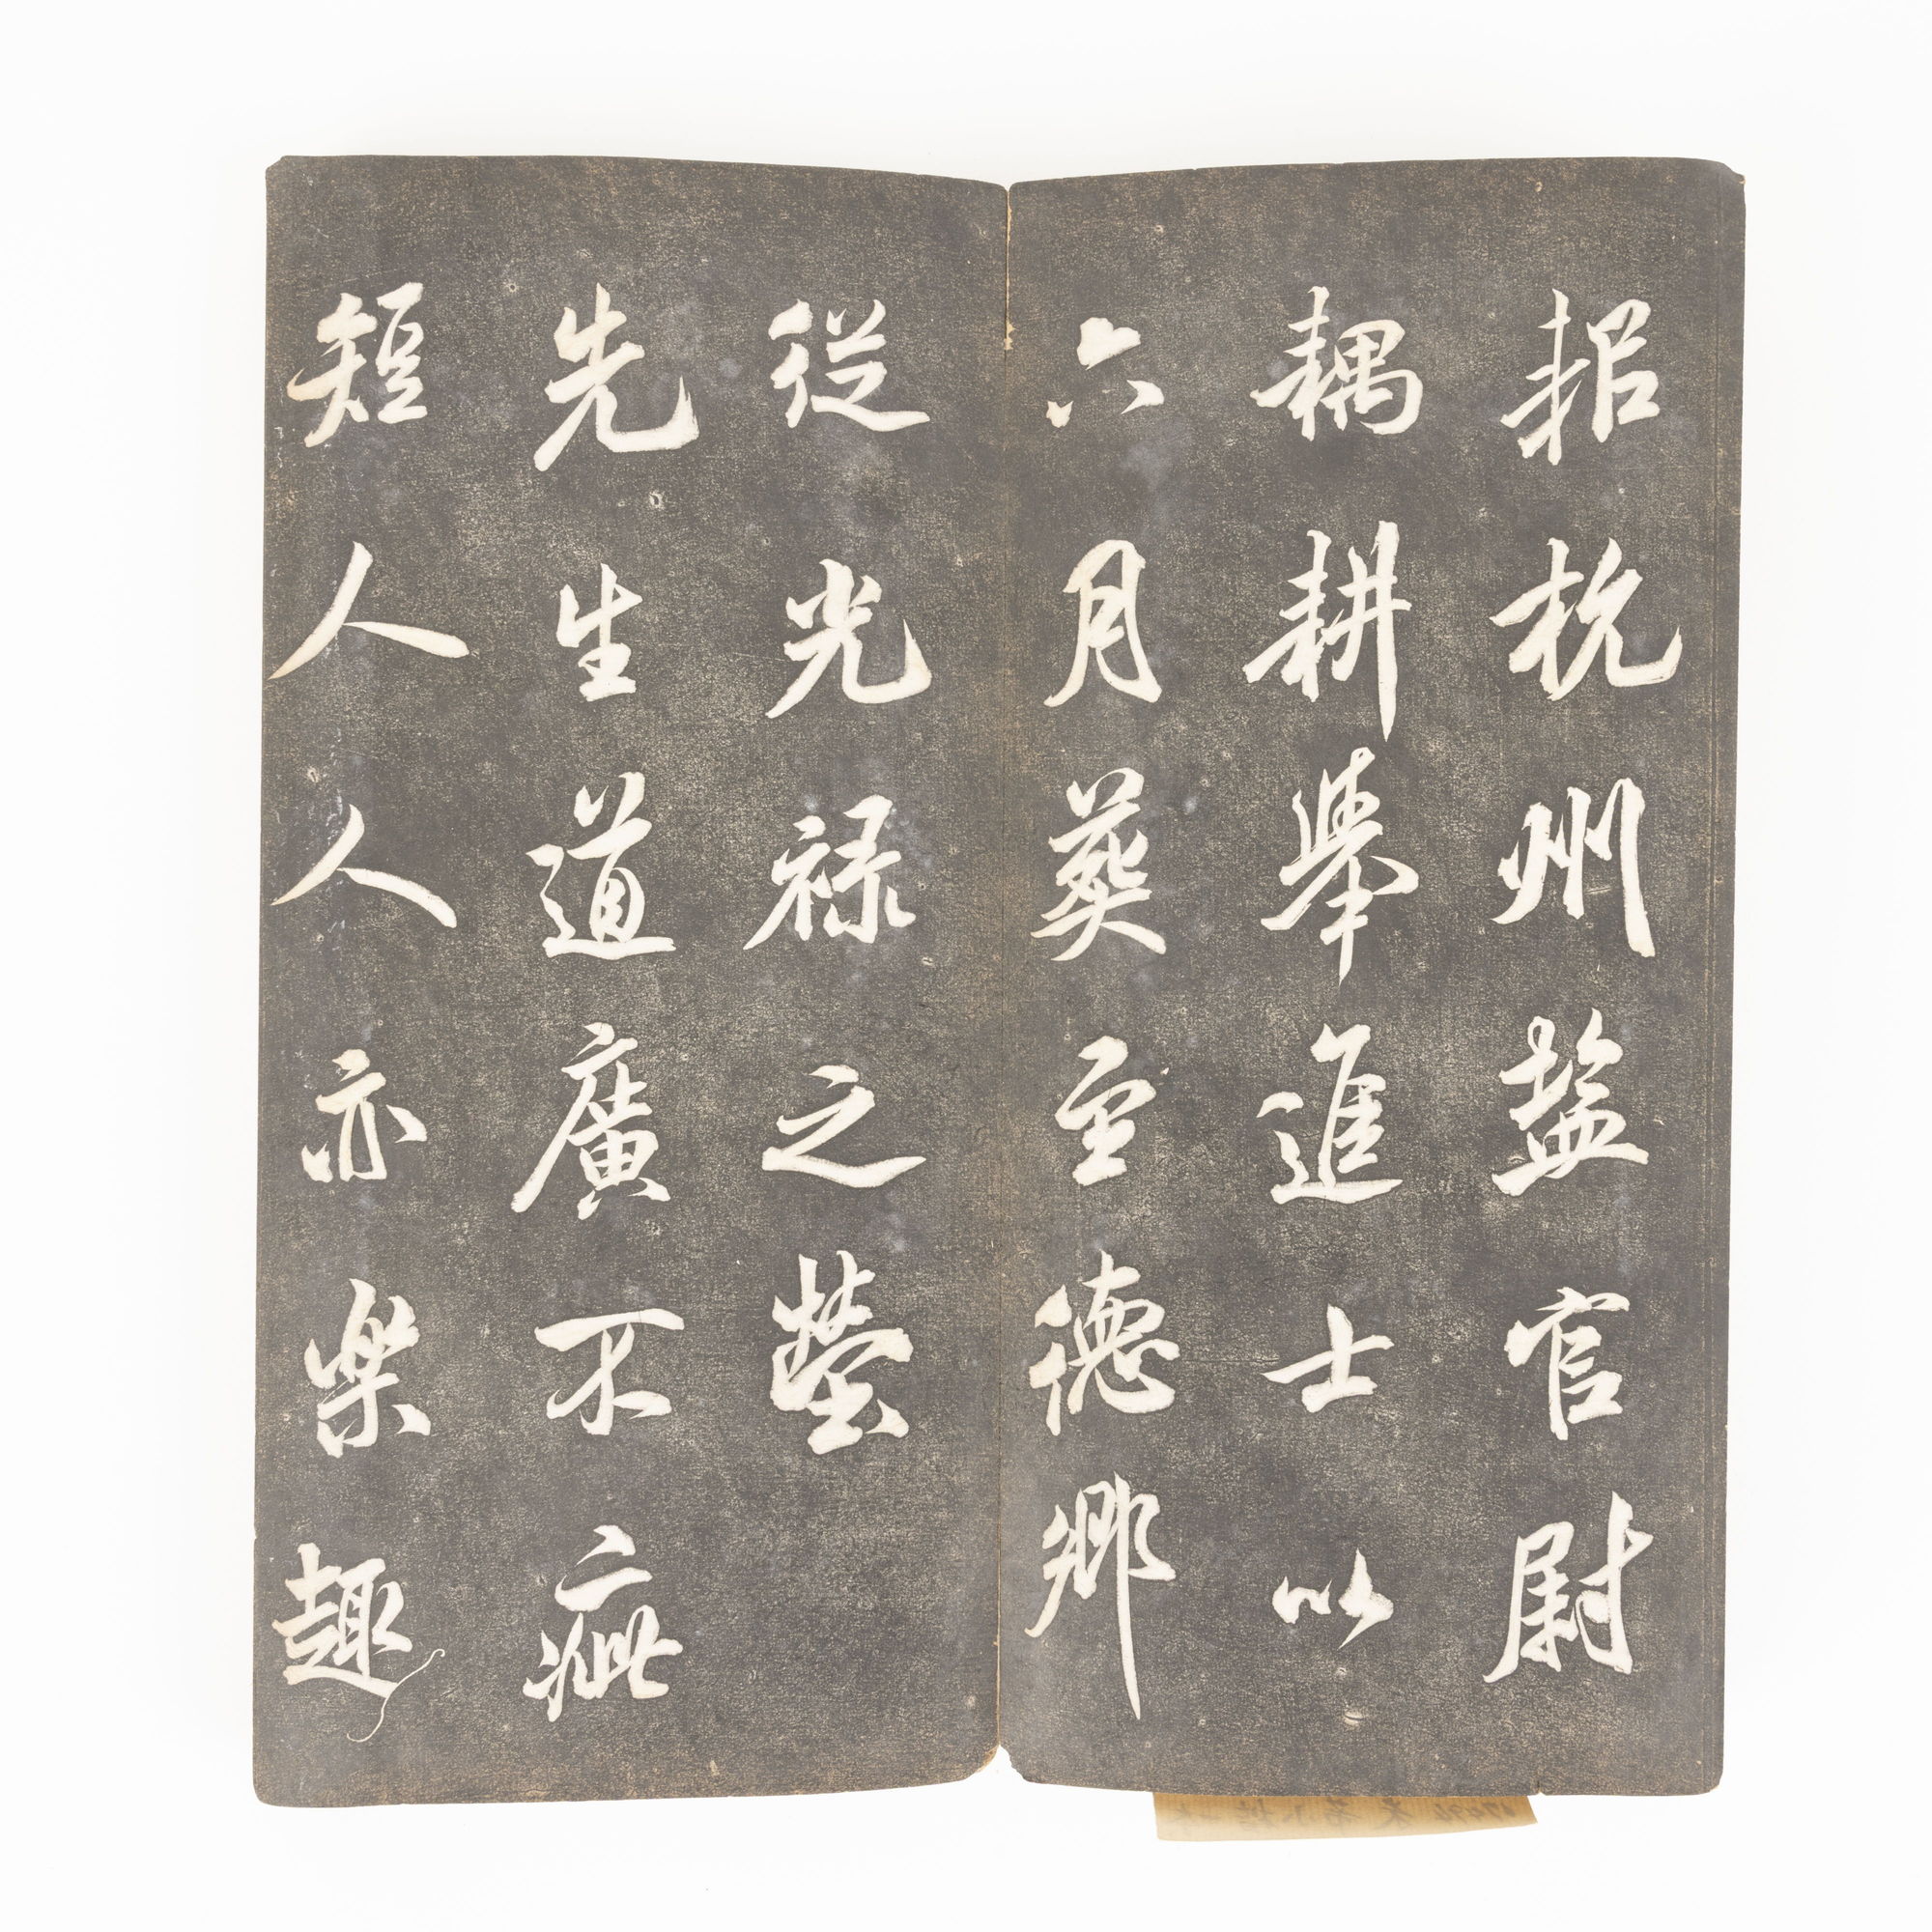 耜杭州塩官尉
耦耕舉進士以
六月葬至德鄉
從光禄之塋
先生道廣不疵
短人人亦樂趣